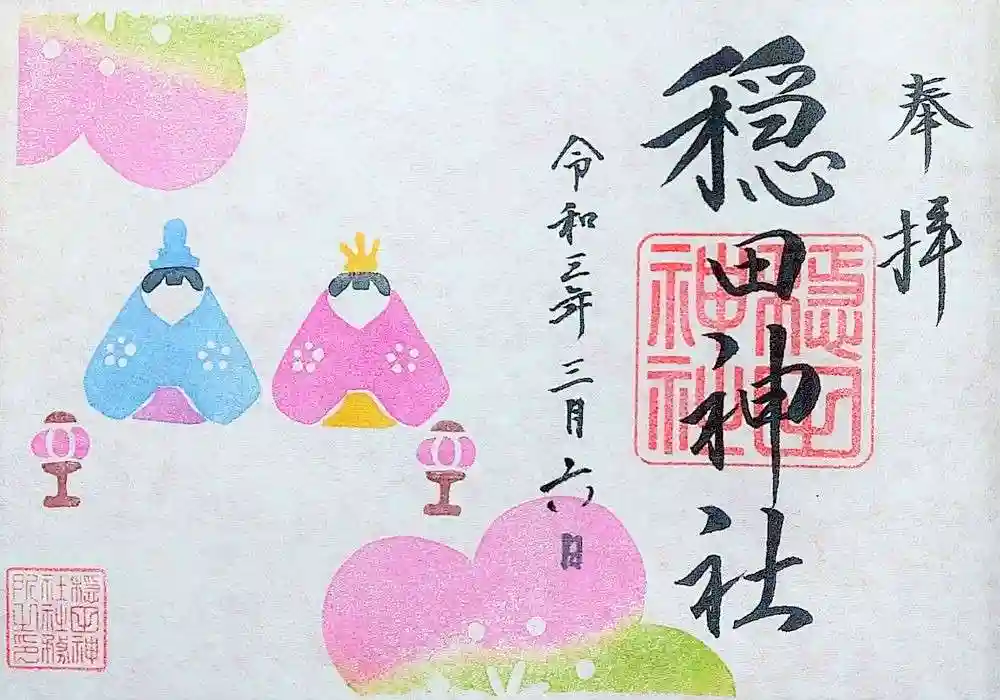 奉拝
穏田神社
穏田神社
令和三年三月六日
穏田神社社務所之印